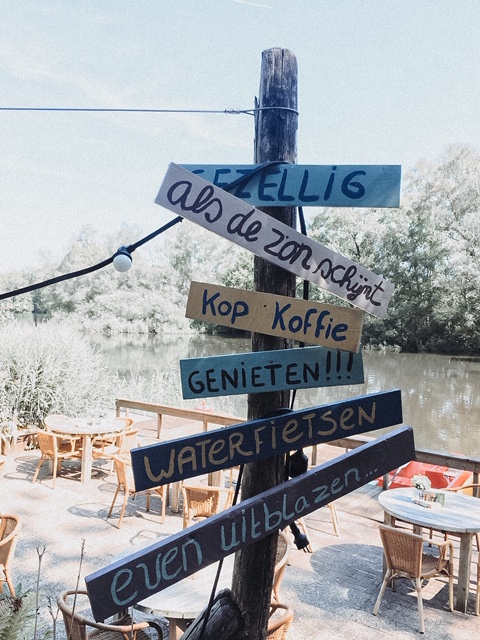 GEZELLIG
als de zon schijnt
Kop Koffie
GENIETEN!!!
WATERFIETSEN
even uitblazen...